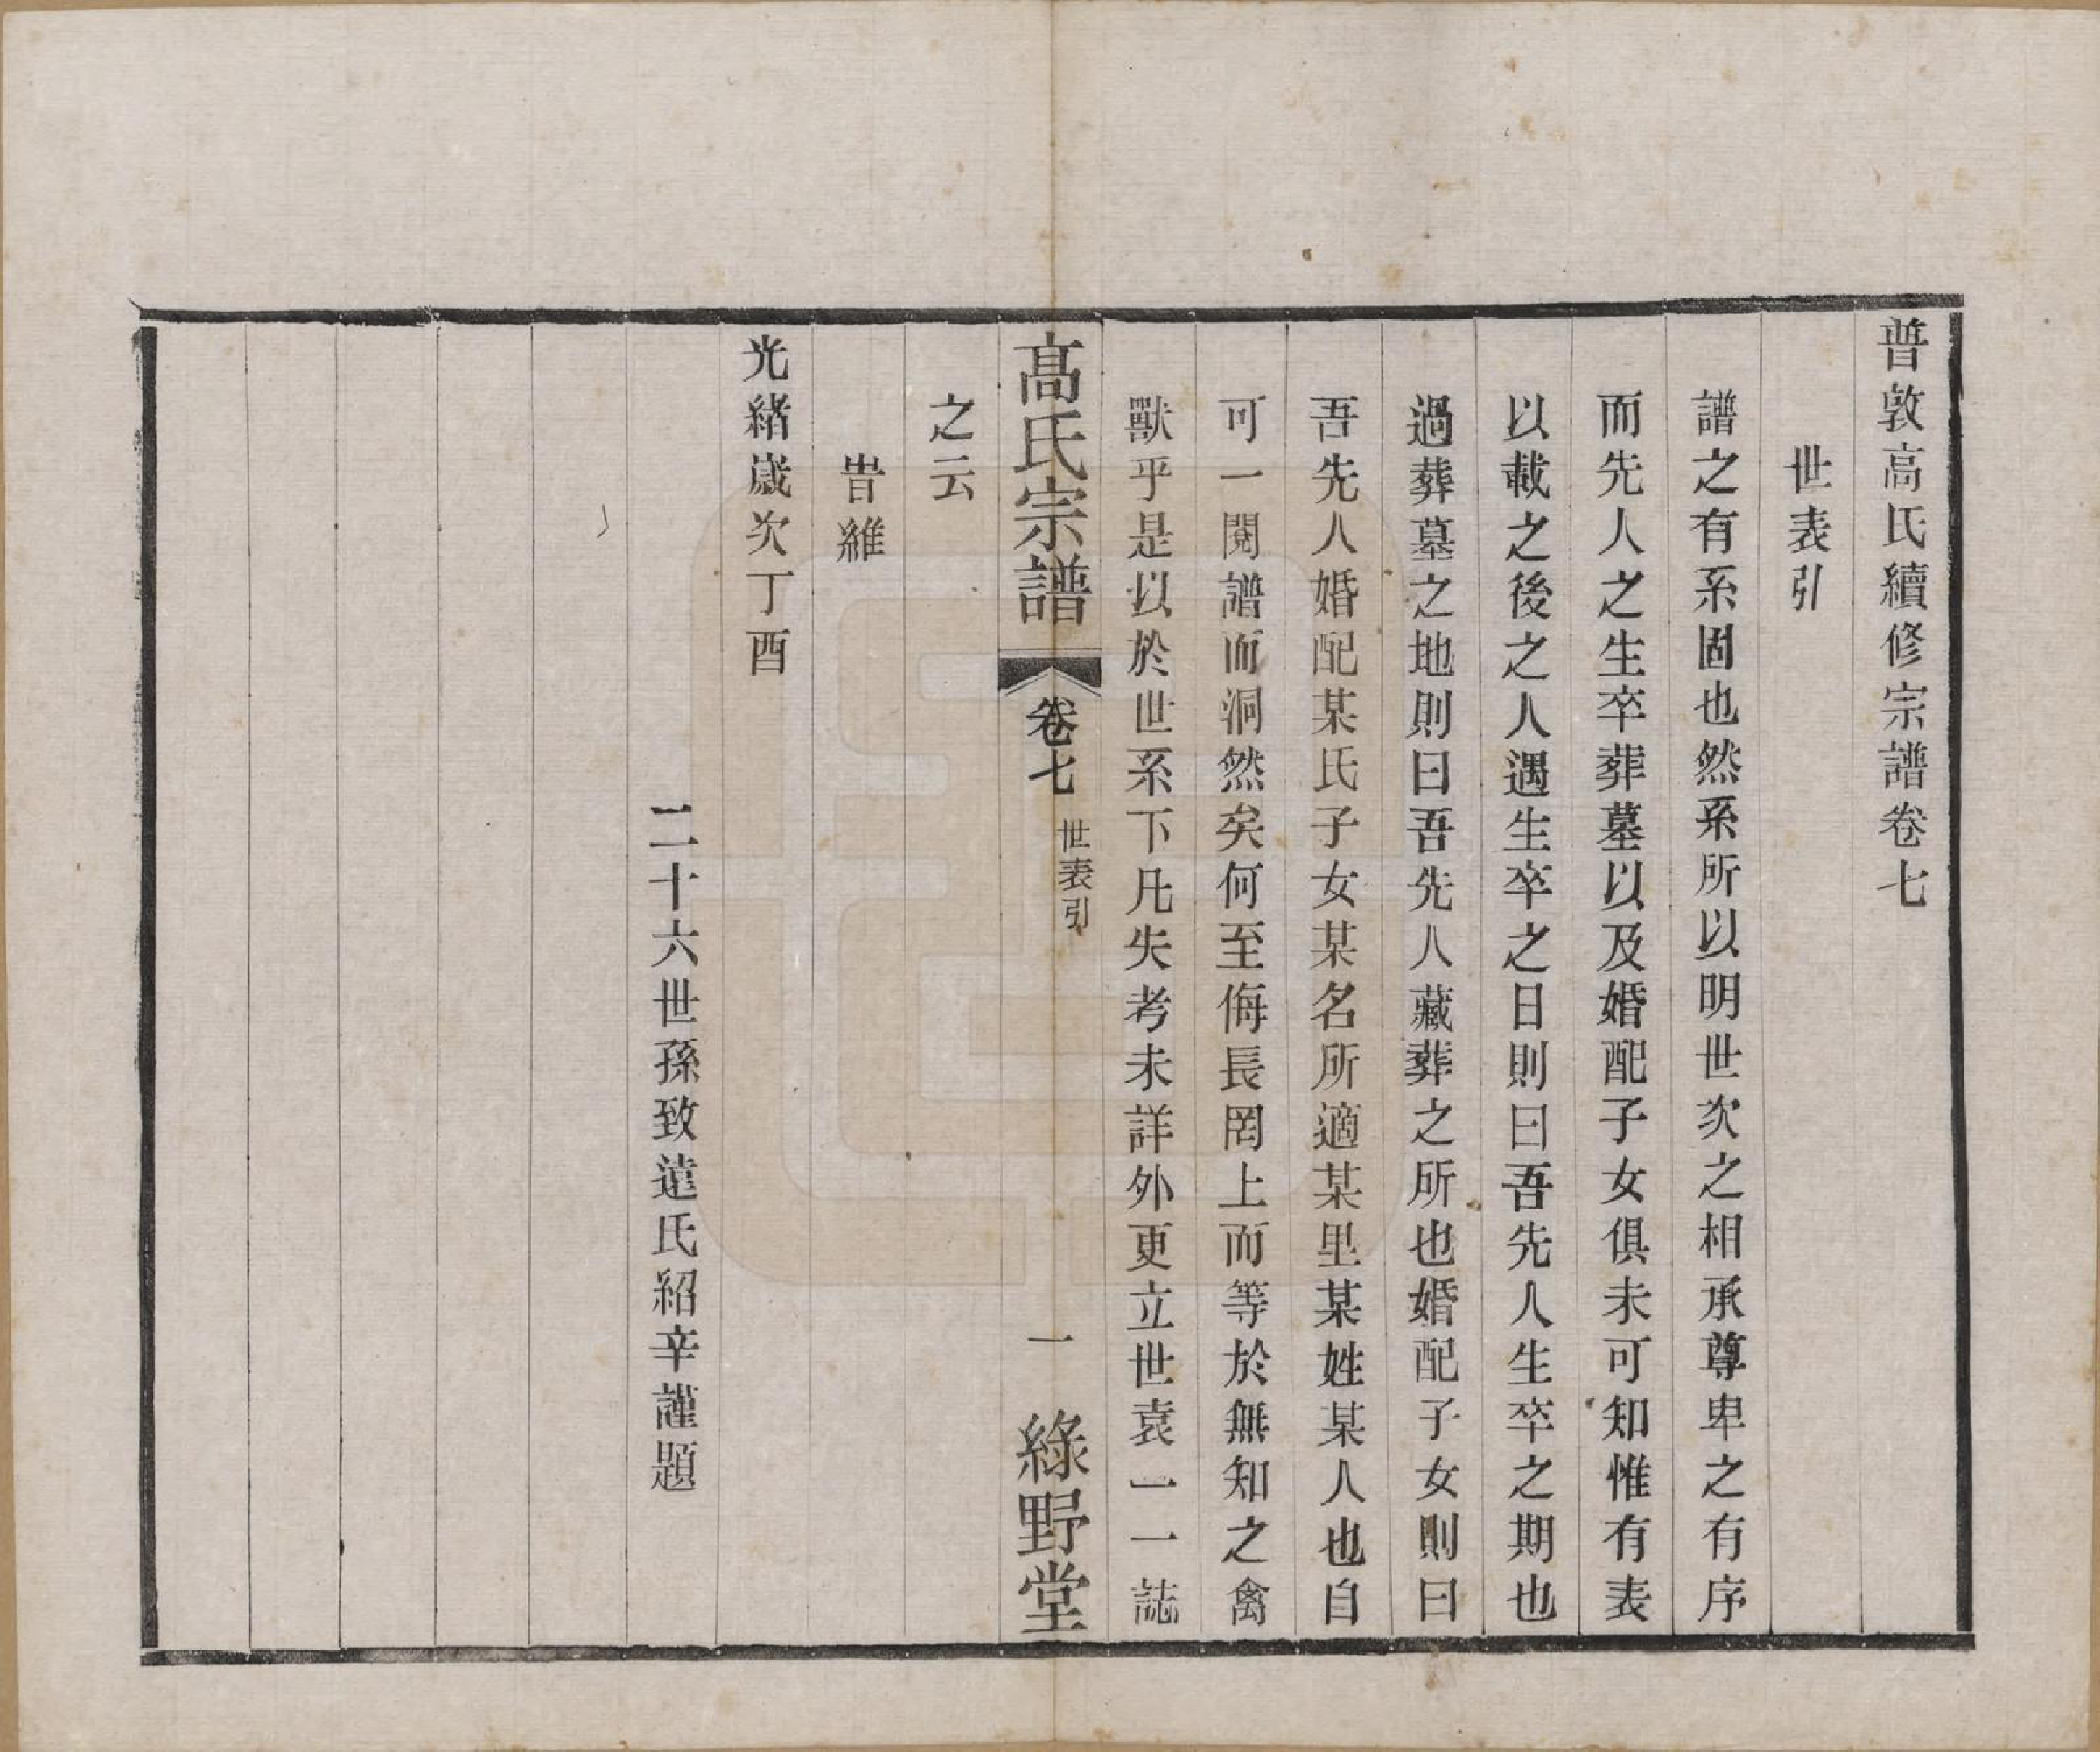 普敦高氏續修宗譜卷七
世表引
譜之有系固也然系所以明世次之相承尊卑之有序
而先人之生卒葬墓以及婚配子女俱未可知惟有表
以載之後之人遇生卒之日則曰吾先人生卒之期也
過葬墓之地則曰吾先人藏葬之所也婚配子女則曰
吾先人婚配某氏子女某名所適某里某姓某人也自
可一閱譜而洞然矣何至侮長罔上而等於無知之禽
獸乎是以於世系下凡失考未詳外更立世表一一誌
髙氏宗譜 卷七 世表引 一 綠野堂
之云
旹維
光緒歲次丁酉
二十六世孫致遠氏紹辛謹題